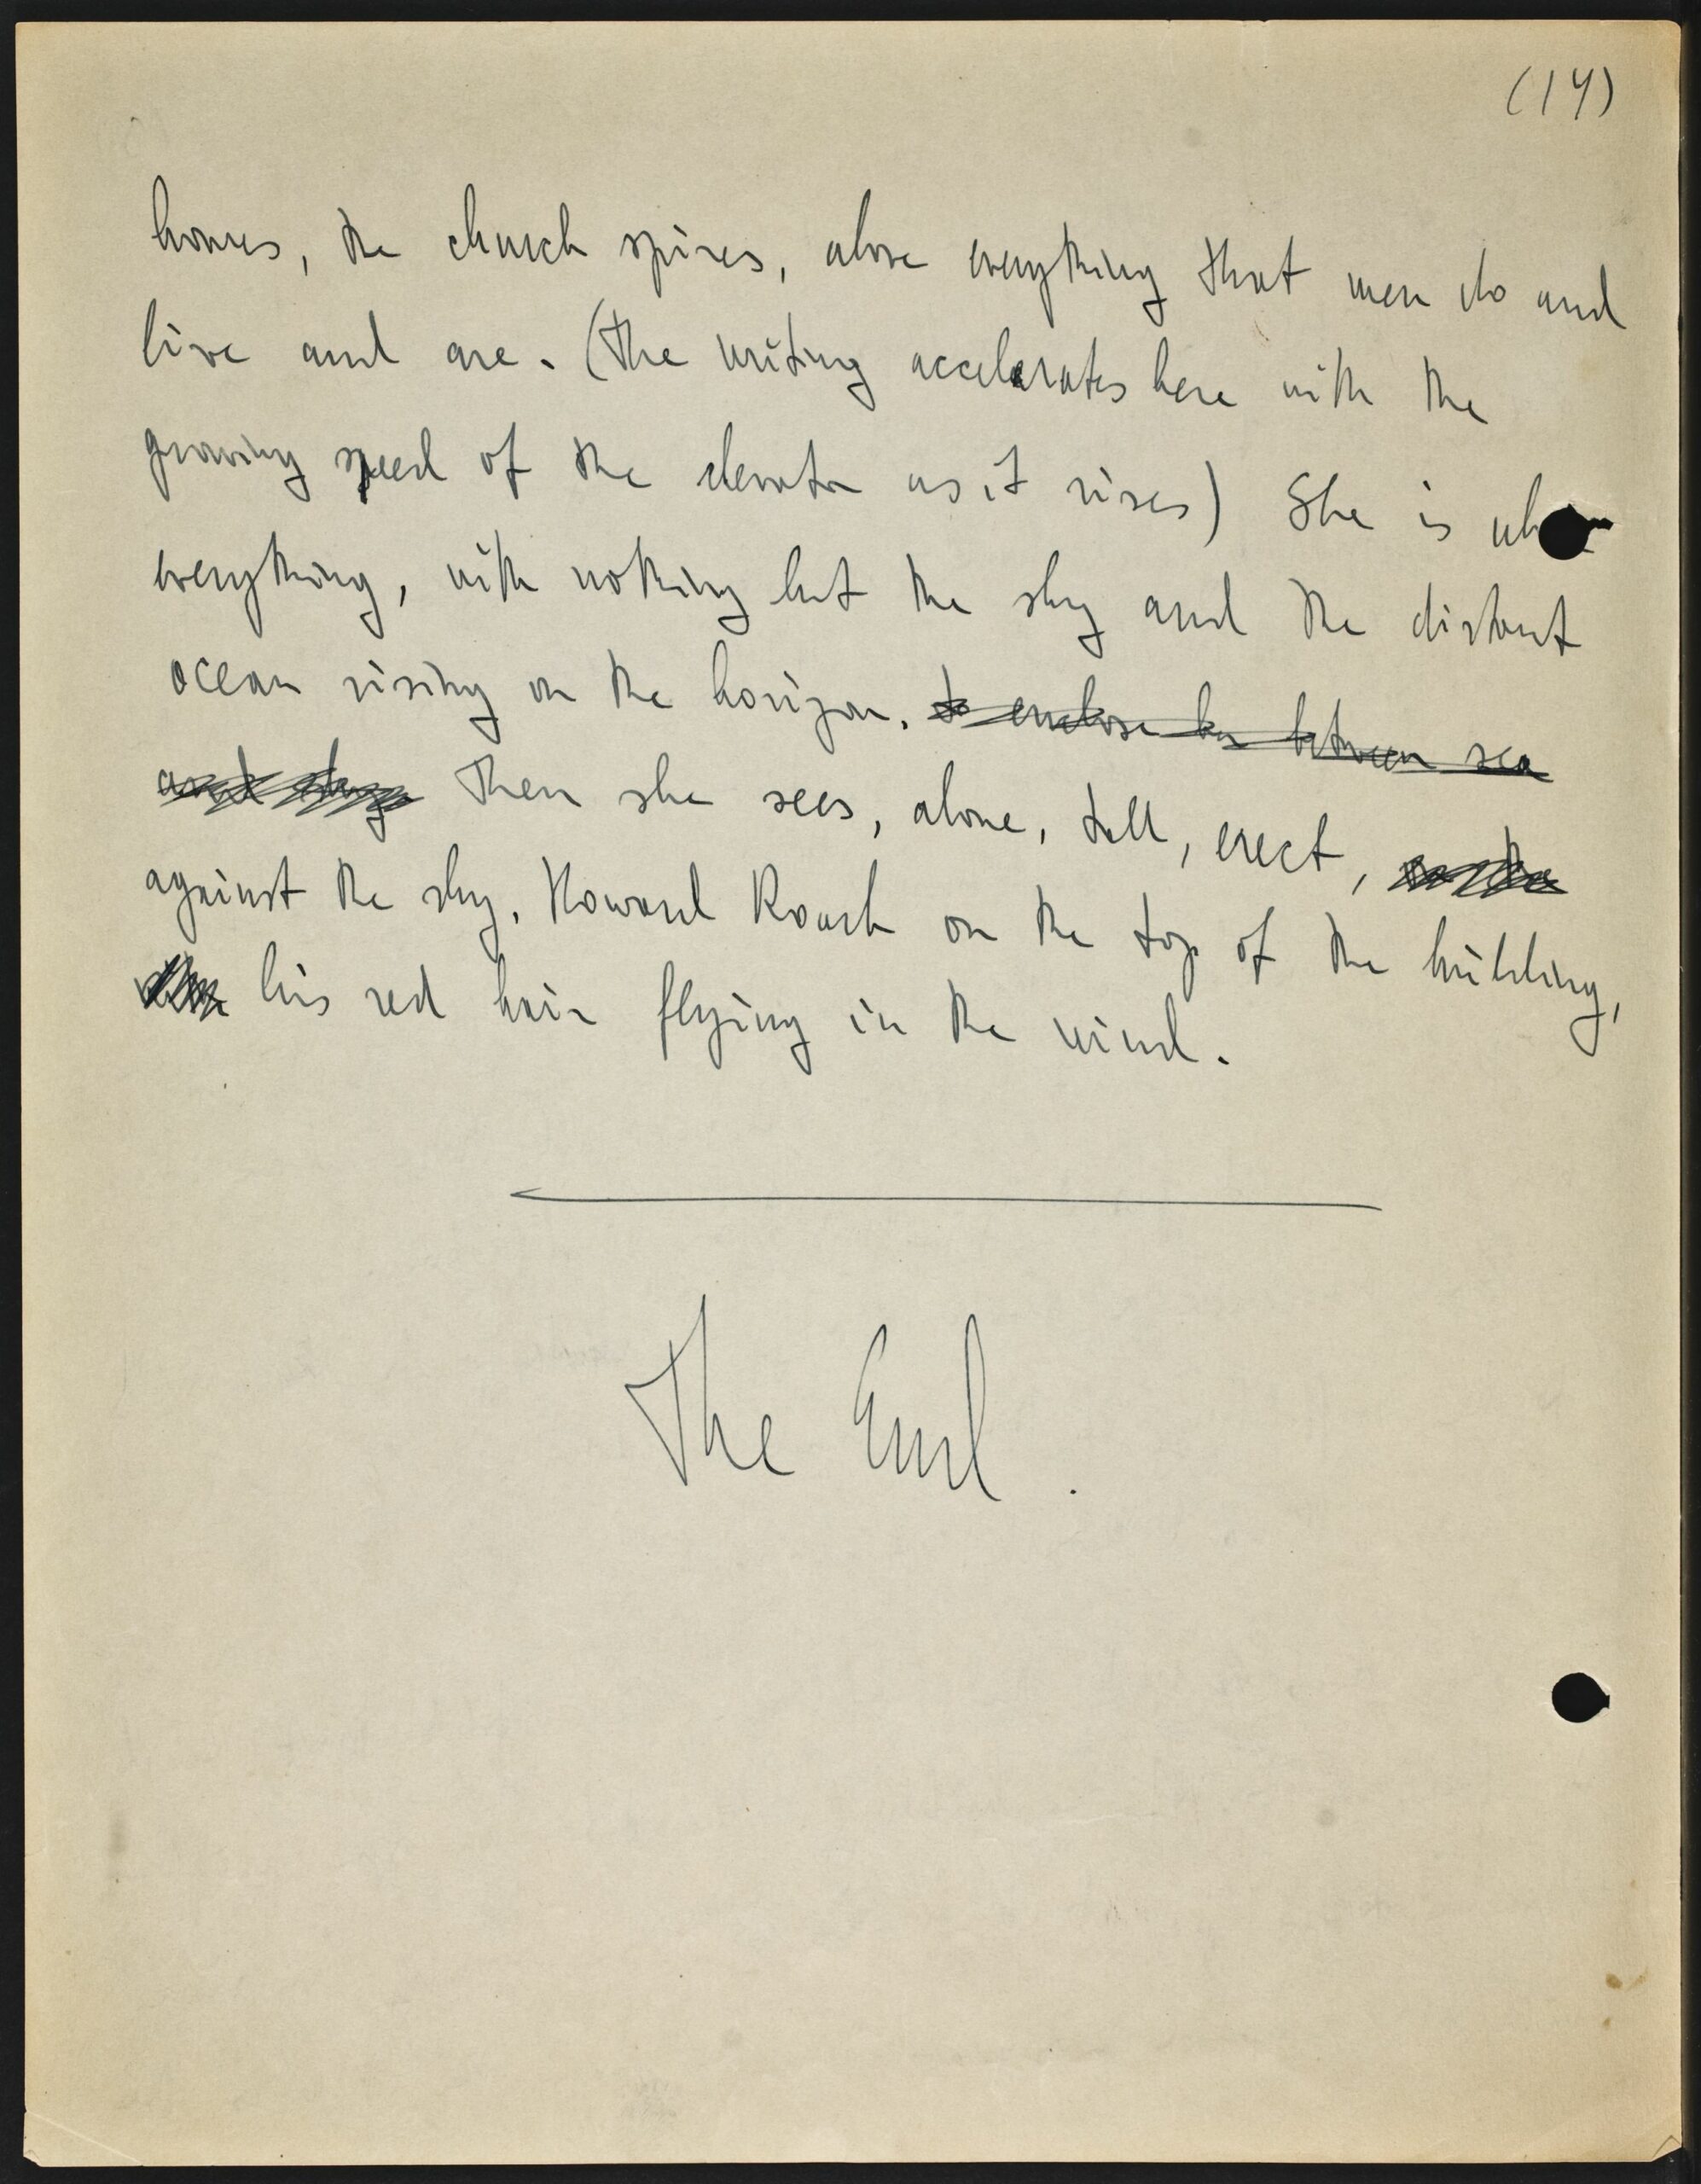 (14)
houses, the church spires, above everything that men do and
live and are. (The writing accelerates here with the
growing speed of the elevator as it rises) She is above
everything, with nothing but the sky and the distant
ocean rising on the horizon. to enclose her between sea
and sky Then she sees, alone, tall, erect,
against the sky, Howard Roark on the top of the building,
his red hair flying in the wind.
The End.